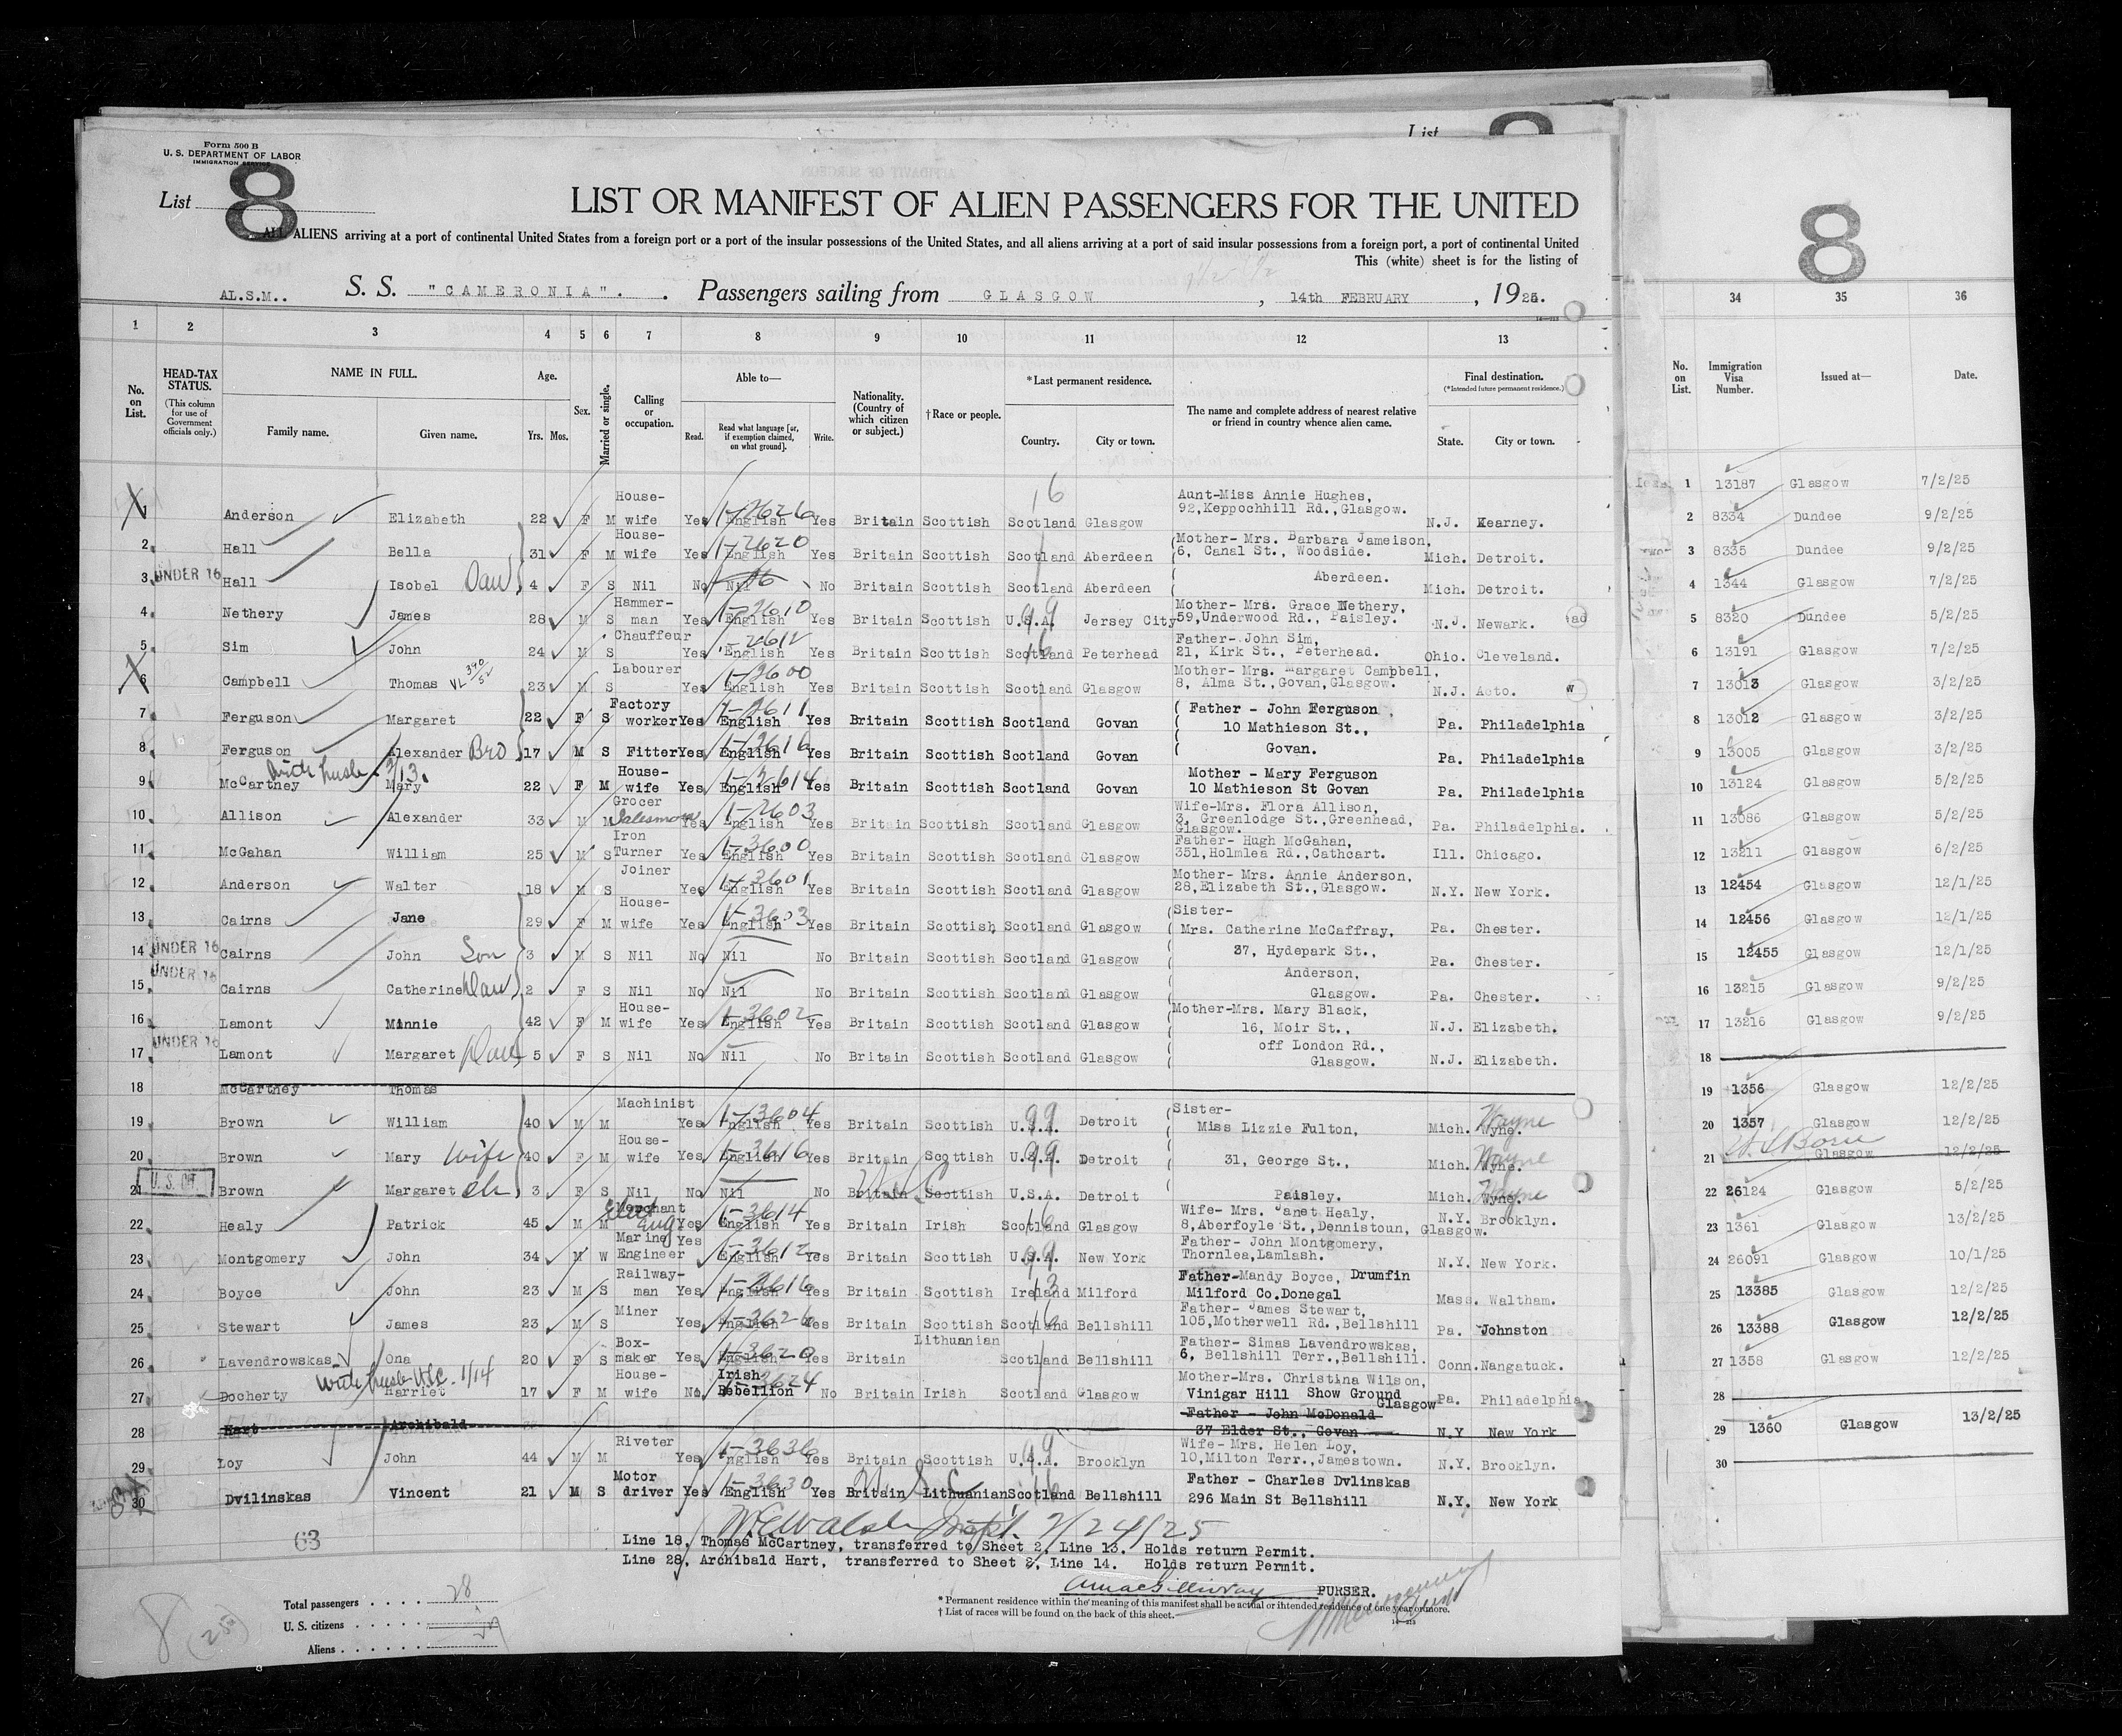 List
Form 500 B
U. S. DEPARTMENT OF LABOR
IMMIGRATION SERVICE
List 8
LIST OR MANIFEST OF ALIEN PASSENGERS FOR THE UNITED
ALL ALIENS arriving at a port of continental United States from a foreign port or a port of the insular possessions of the United States, and all aliens arriving at a port of said insular possessions from a foreign port, a port of continental United
This (white) sheet is for the listing of
AL.S.M.. S. S. "CAMERONIA". Passengers sailing from GLASGOW, 14th FEBRUARY, 1925.
1 2 3 4 5 6 7 8 9 10 11 12 13
No. on List. HEAD-TAX STATUS. (This column for use of Government officials only.) NAME IN FULL. Family name. Given name. Age. Yrs. Mos. Sex. Married or single. Calling or occupation. Able to— Read. Read what language [or, if exemption claimed, on what ground]. Write. Nationality. (Country of which citizen or subject.) †Race or people. *Last permanent residence. Country. City or town. The name and complete address of nearest relative or friend in country whence alien came. Final destination. (*Intended future permanent residence.) State. City or town.
1 Anderson Elizabeth 22 F M House-wife Yes English Yes Britain Scottish Scotland Glasgow Aunt-Miss Annie Hughes, 92,Keppochhill Rd.,Glasgow. N.J. Kearney.
2 Hall Bella 31 F M House-wife Yes English Yes Britain Scottish Scotland Aberdeen Mother- Mrs. Barbara Jameison, 6, Canal St., Woodside. Mich. Detroit.
3 UNDER 16 Hall Isobel Dau 4 F S Nil No Nil No Britain Scottish Scotland Aberdeen Aberdeen. Mich. Detroit.
4 Nethery James 28 M S Hammer-man Yes English Yes Britain Scottish U.S.A. Jersey City Mother- Mrs. Grace Nethery, 59,Underwood Rd., Paisley. N.J. Newark.
5 Sim John 24 M S Chauffeur Yes English Yes Britain Scottish Scotland Peterhead Father- John Sim, 21, Kirk St., Peterhead. Ohio. Cleveland.
6 Campbell Thomas 23 M S Labourer Yes English Yes Britain Scottish Scotland Glasgow Mother- Mrs. Margaret Campbell, 8, Alma St.,Govan,Glasgow. N.J.
7 Ferguson Margaret 22 F S Factory worker Yes English Yes Britain Scottish Scotland Govan Father - John Ferguson 10 Mathieson St., Pa. Philadelphia
8 Ferguson Alexander Bro 17 M S Fitter Yes English Yes Britain Scottish Scotland Govan Govan. Pa. Philadelphia
9 McCartney Mary 22 F M House-wife Yes English Yes Britain Scottish Scotland Govan Mother - Mary Ferguson 10 Mathieson St Govan Pa. Philadelphia
10 Allison Alexander 33 M M Grocer Salesman Yes English Yes Britain Scottish Scotland Glasgow Wife-Mrs. Flora Allison, 3, Greenlodge St.,Greenhead, Glasgow. Pa. Philadelphia.
11 McGahan William 25 M S Iron Turner Yes English Yes Britain Scottish Scotland Glasgow Father- Hugh McGahan, 351,Holmlea Rd.,Cathcart. Ill. Chicago.
12 Anderson Walter 18 M S Joiner Yes English Yes Britain Scottish Scotland Glasgow Mother- Mrs. Annie Anderson, 28,Elizabeth St.,Glasgow. N.Y. New York.
13 Cairns Jane 29 F M House-wife Yes English Yes Britain Scottish Scotland Glasgow Sister- Mrs. Catherine McCaffray, Pa. Chester.
14 UNDER 16 Cairns John Son 3 M S Nil No Nil No Britain Scottish Scotland Glasgow 37, Hydepark St., Pa. Chester.
15 UNDER 16 Cairns Catherine Dau 2 F S Nil No Nil No Britain Scottish Scotland Glasgow Anderson, Glasgow. Pa. Chester.
16 Lamont Minnie 42 F M House-wife Yes English Yes Britain Scottish Scotland Glasgow Mother-Mrs. Mary Black, 16, Moir St., N.J. Elizabeth.
17 UNDER 16 Lamont Margaret Dau 5 F S Nil No Nil No Britain Scottish Scotland Glasgow off London Rd., Glasgow. N.J. Elizabeth.
18 McCartney Thomas
19 Brown William 40 M M Machinist Yes English Yes Britain Scottish U.S.A. Detroit Sister- Miss Lizzie Fulton, Mich. Wyne. Wayne
20 Brown Mary Wife 40 F M House-wife Yes English Yes Britain Scottish U.S.A. Detroit 31, George St., Mich. Wyne. Wayne
21 U.S. CIT. Brown Margaret ch 3 F S Nil No Nil No Britain Scottish U.S.A. Detroit Paisley. Mich. Wyne. Wayne
22 Healy Patrick 45 M M Merchant Elect Eng Yes English Yes Britain Irish Scotland Glasgow Wife- Mrs. Janet Healy. 8,Aberfoyle St.,Dennistoun, Glasgow. N.Y. Brooklyn.
23 Montgomery John 34 M W Marine Engineer Yes English Yes Britain Scottish U.S.A. New York Father- John Montgomery, Thornlea,Lamlash. N.Y. New York.
24 Boyce John 23 M S Railway-man Yes English Yes Britain Scottish Ireland Milford Father-Mandy Boyce, Drumfin Milford Co.Donegal Mass. Waltham.
25 Stewart James 23 M S Miner Yes English Yes Britain Scottish Scotland Bellshill Father- James Stewart, 105,Motherwell Rd.,Bellshill Pa. Johnston
26 Lavendrowskas Ona 20 F S Box-maker Yes English Yes Britain Lithuanian Scotland Bellshill Father- Simas Lavendrowskas, 6, Bellshill Terr.,Bellshill. Conn. Nangatuck.
27 Docherty Harriet 17 F M House-wife No Irish Rebellion No Britain Irish Scotland Glasgow Mother-Mrs. Christina Wilson, Vinigar Hill Show Ground Glasgow Pa. Philadelphia
28 Hart Archibald Father - John McDonald 37 Elder St., Govan N.Y New York
29 Loy John 44 M M Riveter Yes English Yes Britain Scottish U.S.A. Brooklyn Wife- Mrs. Helen Loy, 10,Milton Terr.,Jamestown. N.Y. Brooklyn.
30 Dvilinskas Vincent 21 M S Motor driver Yes English Yes Britain Lithuanian Scotland Bellshill Father - Charles Dvlinskas 296 Main St Bellshill N.Y. New York
63
2/24/25
Line 18, Thomas McCartney, transferred to Sheet 2, Line 13. Holds return Permit.
Line 28, Archibald Hart, transferred to Sheet 2, Line 14. Holds return Permit.
PURSER.
Total passengers . . . . 28
U. S. citizens . . . . .
Aliens . . . . . .
* Permanent residence within the meaning of this manifest shall be actual or intended residence of one year or more.
† List of races will be found on the back of this sheet.
8
34 35 36
No. on List. Immigration Visa Number. Issued at— Date.
1 13187 Glasgow 7/2/25
2 8334 Dundee 9/2/25
3 8335 Dundee 9/2/25
4 1344 Glasgow 7/2/25
5 8320 Dundee 5/2/25
6 13191 Glasgow 7/2/25
7 13013 Glasgow 3/2/25
8 13012 Glasgow 3/2/25
9 13005 Glasgow 3/2/25
10 13124 Glasgow 5/2/25
11 13086 Glasgow 5/2/25
12 13211 Glasgow 6/2/25
13 12454 Glasgow 12/1/25
14 12456 Glasgow 12/1/25
15 12455 Glasgow 12/1/25
16 13215 Glasgow 9/2/25
17 13216 Glasgow 9/2/25
18
19 1356 Glasgow 12/2/25
20 1357 Glasgow 12/2/25
21 U.S. Born Glasgow 12/2/25
22 26124 Glasgow 5/2/25
23 1361 Glasgow 13/2/25
24 26091 Glasgow 10/1/25
25 13385 Glasgow 12/2/25
26 13388 Glasgow 12/2/25
27 1358 Glasgow 12/2/25
28
29 1360 Glasgow 13/2/25
30